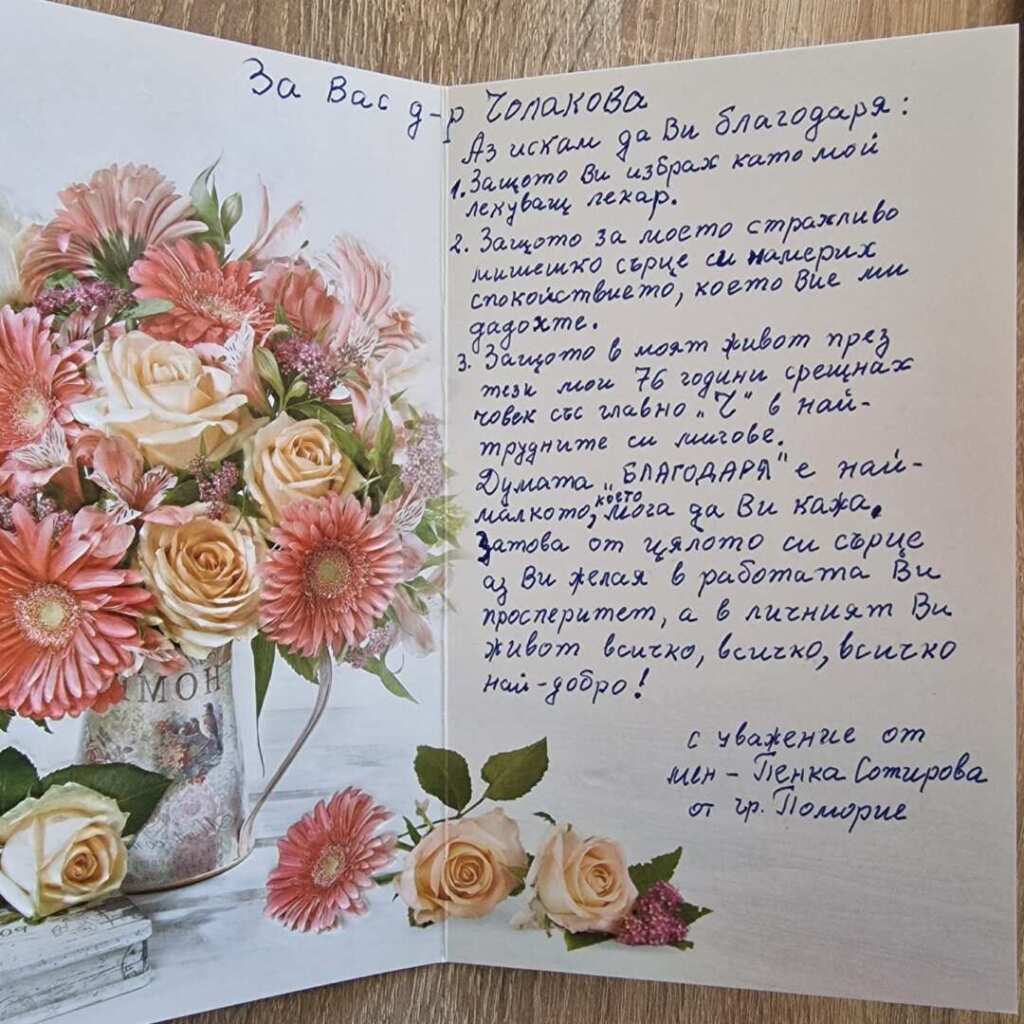 За Вас д-р Чолакова
Аз искам да Ви благодаря:
1. Защото Ви избрах като мой
лекуващ лекар.
2. Защото за моето стражливо
мишешко сърце си намерих
спокойствието, което Вие ми
дадохте.
3. Защото в моят живот през
тези мои 76 години срещнах
човек със главно „Ч" в най-
трудните си мигове.
Думата „БЛАГОДАРЯ" е най-
малкото, което мога да Ви кажа.
Затова от цялото си сърце
аз Ви желая в работата Ви
просперитет, а в личният Ви
живот всичко, всичко, всичко
най-добро!
с уважение от
мен - Пенка Сотирова
от гр. Поморие
HOM